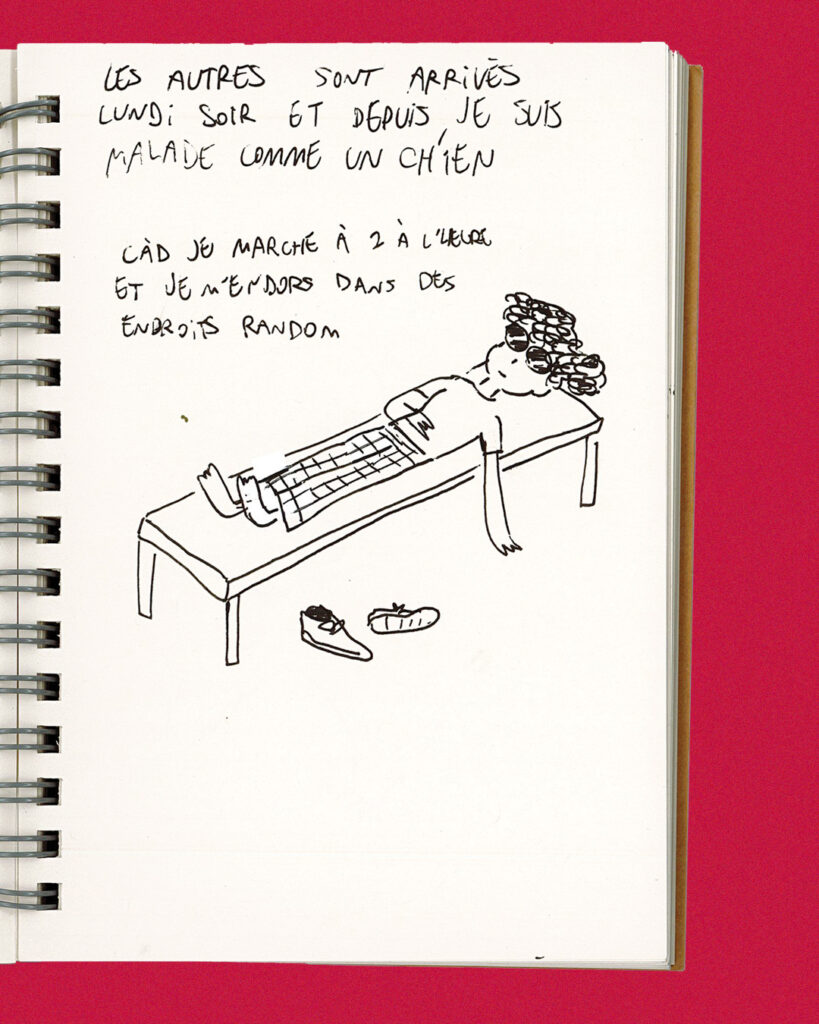 LES AUTRES SONT ARRIVÉS
LUNDI SOIR ET DEPUIS, JE SUIS
MALADE COMME UN CHIEN
CÀD JE MARCHE À 2 À L'HEURE
ET JE M'ENDORS DANS DES
ENDROITS RANDOM